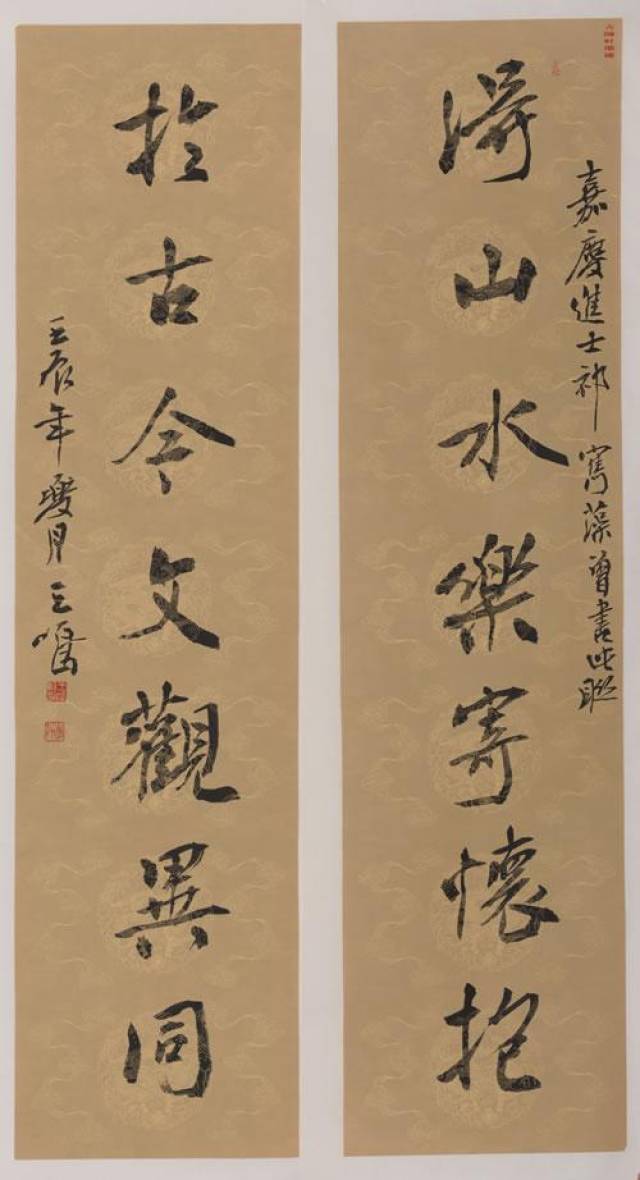 嘉慶進士祁寯藻曾書此聯
得山水樂寄懷抱
於古今文觀異同
壬辰年夏月王